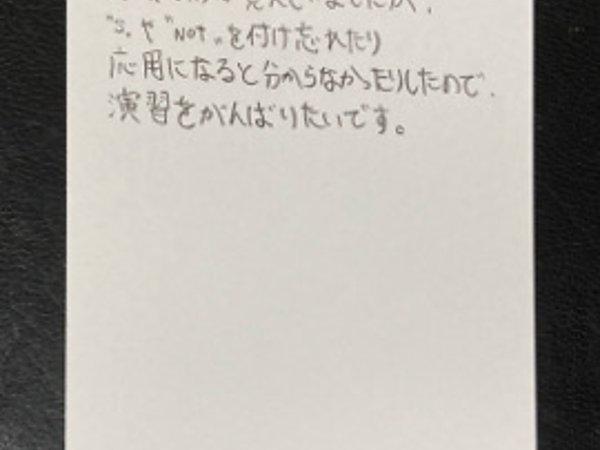 覚えていましたが、
"S"や"Not"を付け忘れたり
応用になると分からなかったりしたので、
演習をがんばりたいです。